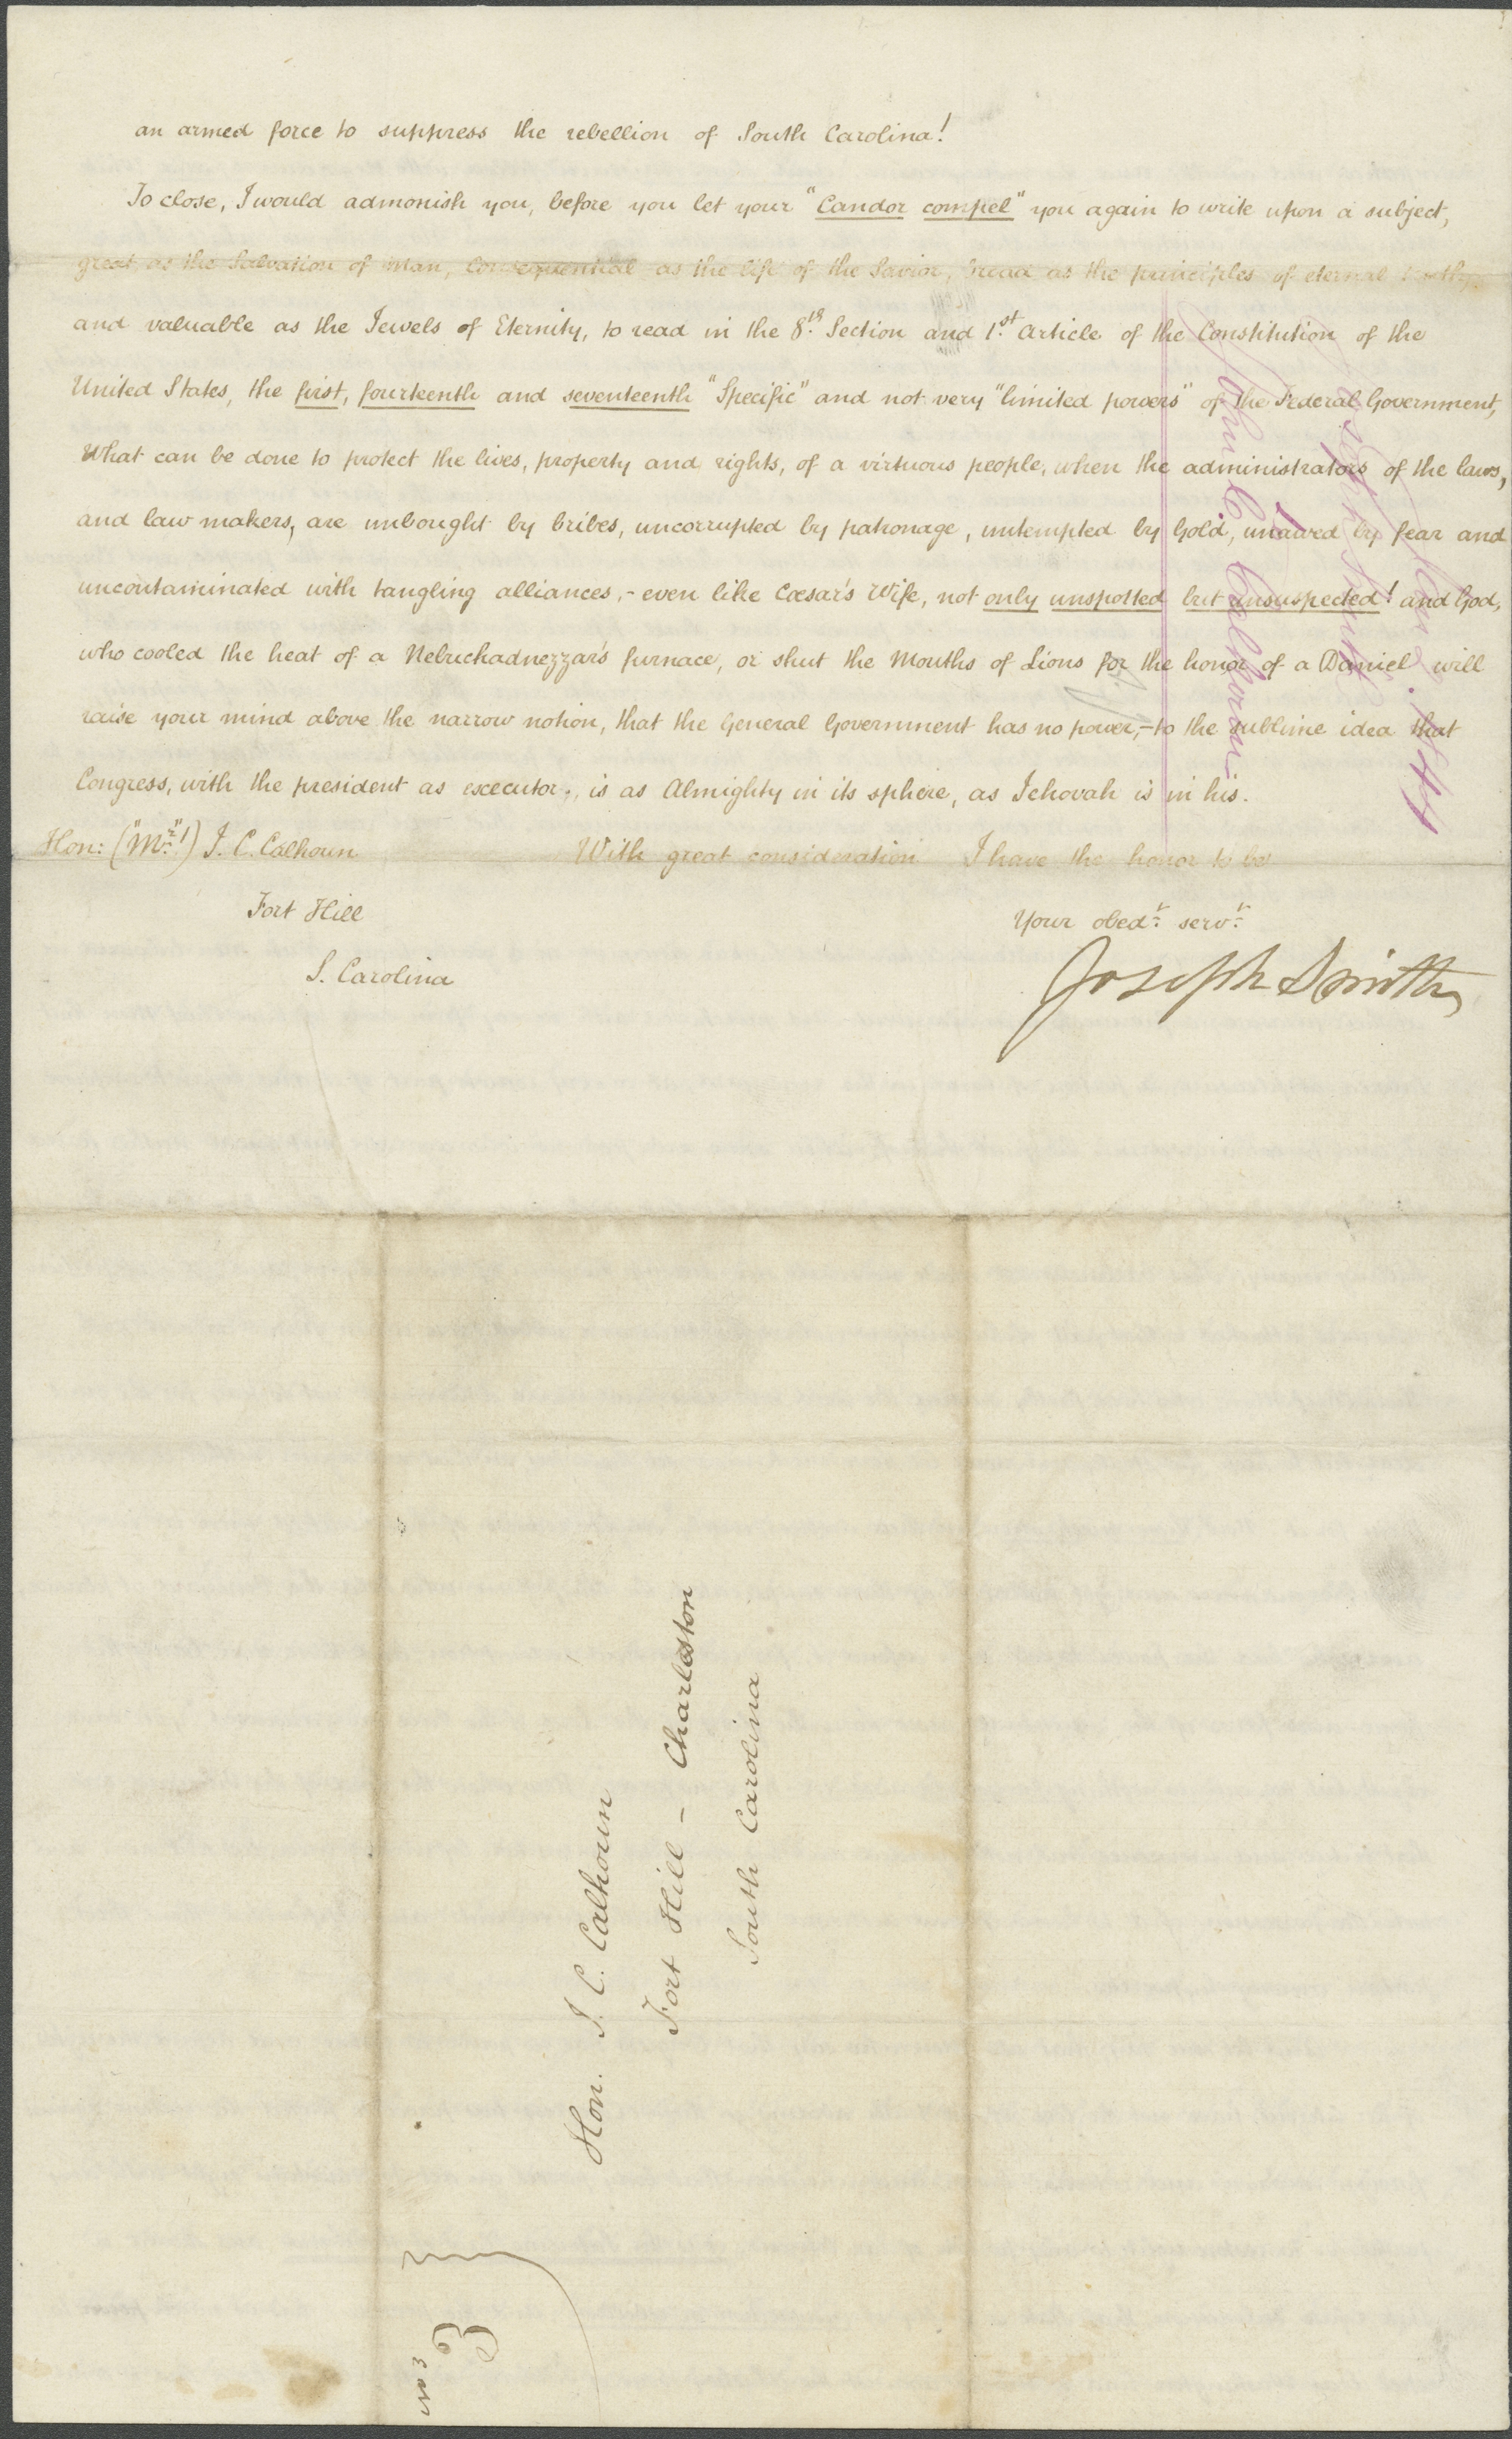 an armed force to suppress the rebellion of South Carolina!
To close, I would admonish you, before you let your "Candor compel" you again to write upon a subject,
great, as the Salvation of Man, Consequential as the life of the Savior, broad as the principles of eternal truth,
and valuable as the Jewels of Eternity, to read in the 8th. Section and 1st. Article of the Constitution of the
United States, the first, fourteenth and seventeenth "Specific" and not very "limited powers" of the Federal Government,
What can be done to protect the lives, property and rights, of a virtuous people, when the administrators of the laws,
and law makers, are unbought by bribes, uncorrupted by patronage, untempted by Gold, unawed by fear and
uncontaminated with tangling alliances,- even like Cæsar's Wife, not only unspotted but unsuspected! and God,
who cooled the heat of a Nebuchadnezzar's furnace, or shut the Mouths of Lions for the honor of a Daniel will
raise your mind above the narrow notion, that the General Government has no power,- to the sublime idea that
Congress, with the president as executor, is as Almighty in its sphere, as Jehovah is in his.
Hon: ("Mr."!) J. C. Calhoun With great consideration I have the honor to be
Fort Hill
Your obedt. servt.
S. Carolina
Joseph Smith
John C. Calhoun
Joseph Smith
Hon. J. C. Calhoun
Fort Hill - Charleston
South Carolina
No 3
3